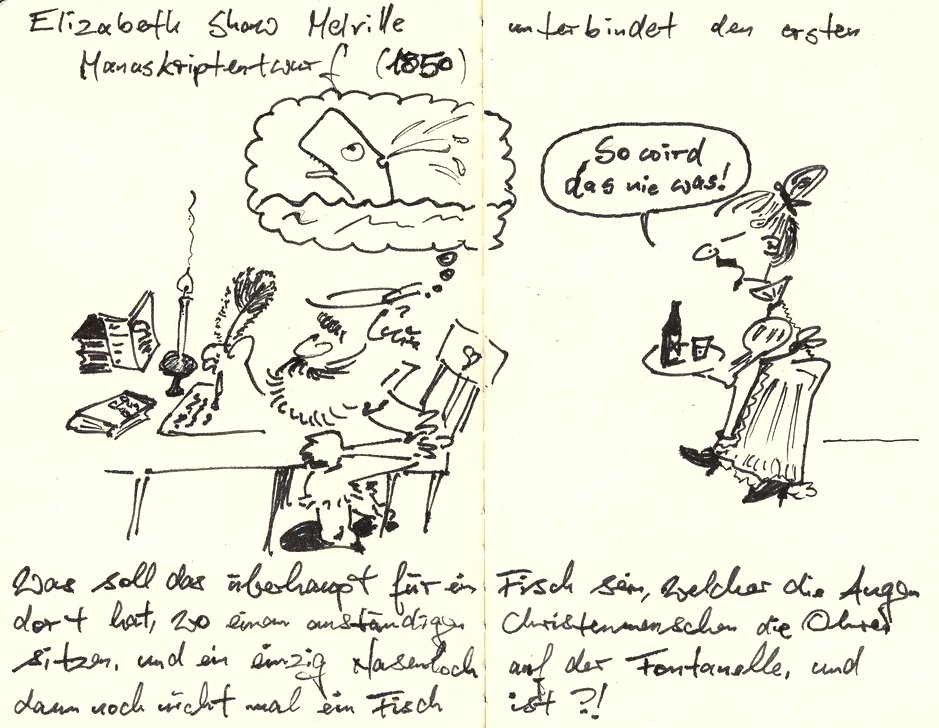 Elizabeth Shaw Melville unterbindet den ersten
Manuskriptentwurf (1850)
So wird
das nie was!
Was soll das überhaupt für ein Fisch sein, welcher die Augen
dort hat, wo einem anständigen Christenmenschen die Ohren
sitzen, und ein einzig Nasenloch auf der Fontanelle, und
dann noch nicht mal ein Fisch ist ?!